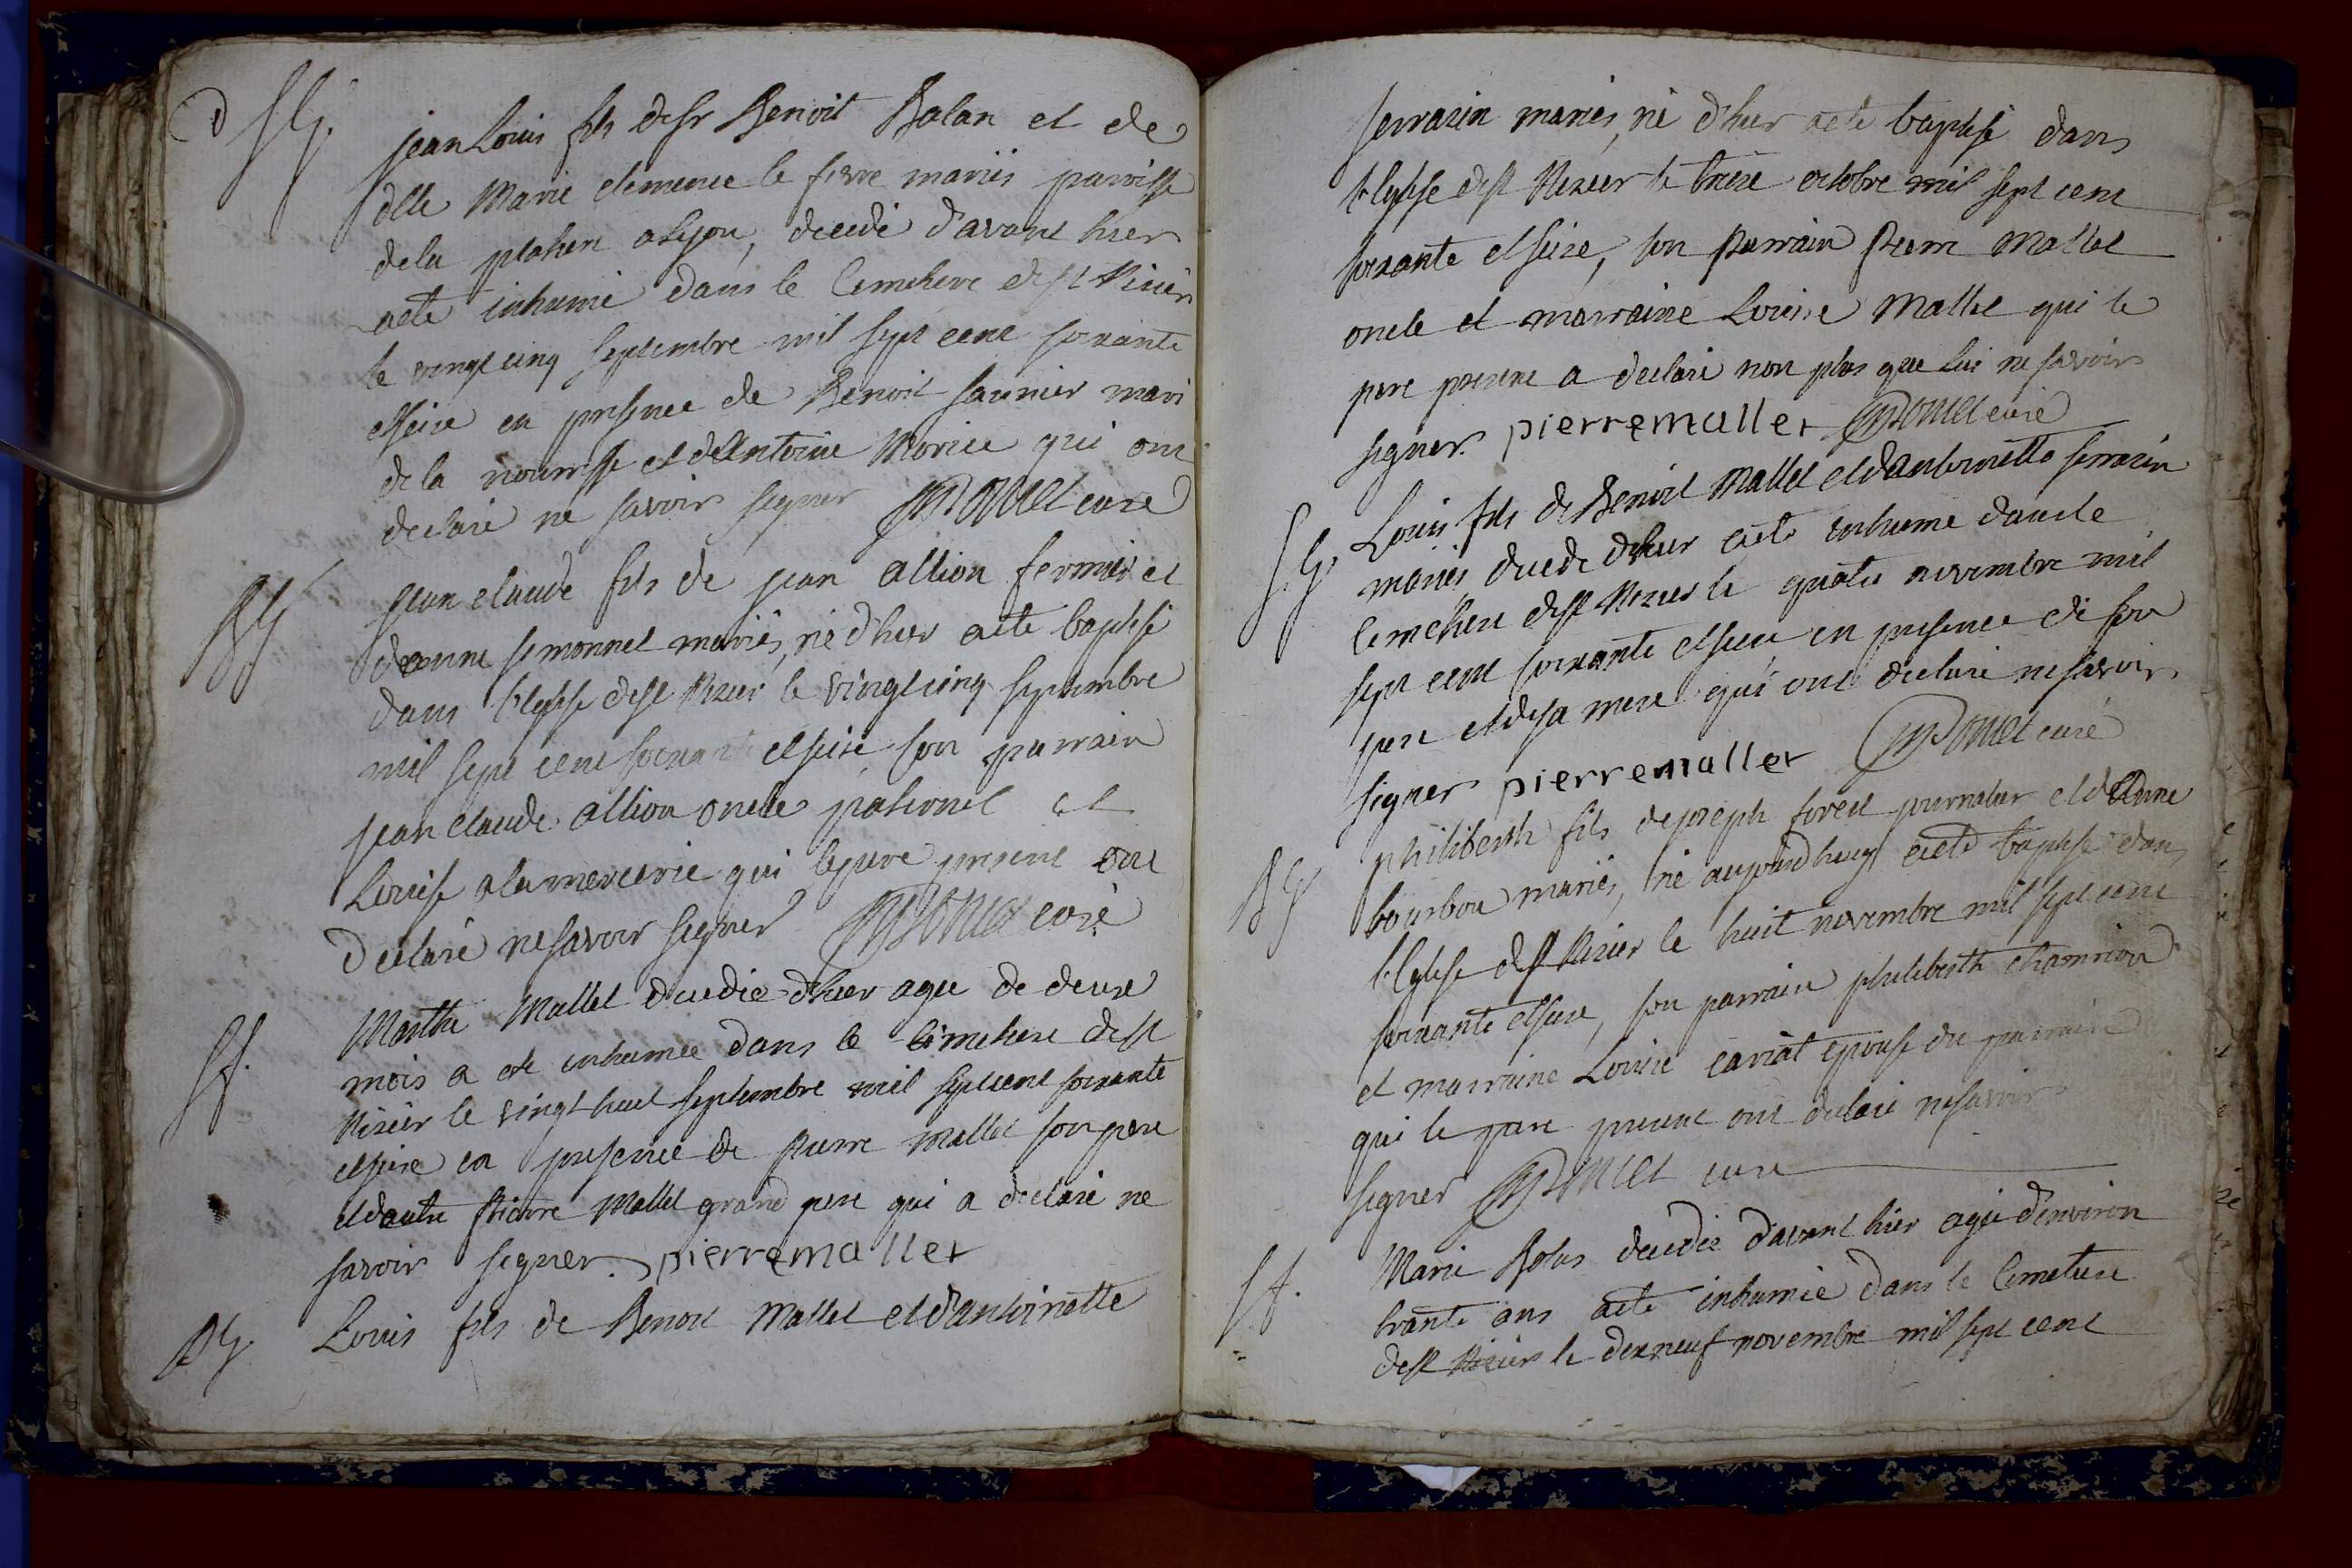 SG. jean Louis fils de Sr Benoit Balan et de
dlle Marie clemence le ferre mariés paroisse
de la platiere a Lyon, decedé d'avant hier
a eté inhumé dans le Cimetiere de St Nizier
le vingt cinq septembre mil sept cent soixante
et seize en presence de Benoit saunier mari
de la nourrisse et de Antoine Morice qui ont
declaré ne savoir signer curé
BG jean claude fils de jean allion fermier et
de anne simonnet mariés, né d'hier a eté baptisé
dans l'eglise de St Nizier le vingt cinq septembre
mil sept cent soixante et seize, son parrain
jean claude allion oncle paternel et
Louise alamercerie qui le pere present ont
declaré ne savoir signer curé
Sf. Marthe Mallet decedée d'hier agée de deux
mois a eté inhumée dans le cimetiere de St
Nizier le vingt huit septembre mil sept cent soixante
et seize en presence de pierre mallet son pere
et d'autre Pierre Mallet grand pere qui a declaré ne
savoir signer. pierre mallet
BG. Louis fils de Benoit Mallet et d'antoinette
serrazin mariés, né d'hier a eté baptisé dans
l'eglise de St Nizier le treize octobre mil sept cent
soixante et seize, son Parrain Pierre Mallet
oncle et marraine Louise Mallet qui le
pere present a declaré non plus que lui ne savoir
signer. pierre mallet curé
S.G. Louis fils de Benoit Mallet et d'antoinette serrazin
mariés decedé d'hier a eté inhumé dans le
cimetiere de St Nizier le quatre novembre mil
sept cent soixante et seize en presence de son
pere et de sa mere qui ont declaré ne savoir
signer pierre mallet curé
BG philiberth fils de joseph forest journalier et de Anne
bourbon mariés, né aujourdhuy a eté baptisé dans
l'Eglise de St Nizier le huit novembre mil sept cent
soixante et seize, son parrain philiberth chamrion
et marraine Louise cariat epouse du parrain
qui le pere present ont declaré ne savoir
signer curé
Sf. Marie Bolus decedée d'avant hier agée d'environ
trante ans a eté inhumée dans le Cimetiere
de St Nizier le dix neuf novembre mil sept cent